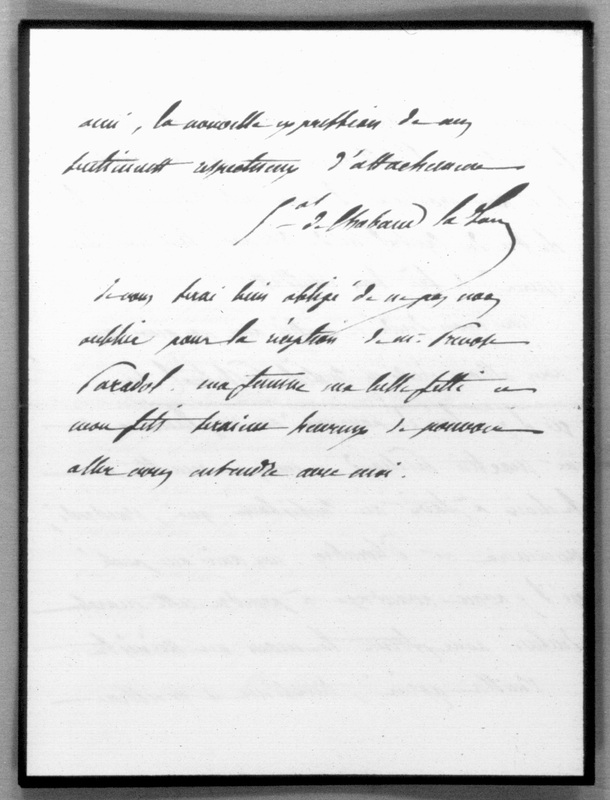 ami, la nouvelle expression de mes
sentiments respectueux d'attachement
G.al de Chabaud la Tour
Je vous serai bien obligé de ne pas nous
oublier pour la réception de Mr. Prevost
Paradol. ma femme ma belle fille et
mon fils seraient heureux de pouvoir
aller vous entendre avec moi.